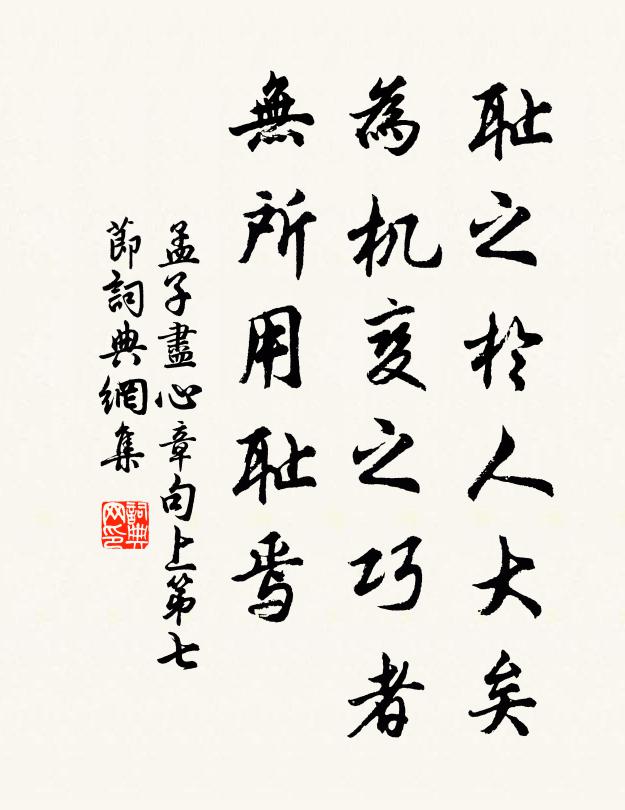 耻之於人大矣
為机变之巧者
無所用耻焉
孟子盡心章句上第七
節詞典網集
詞典网印